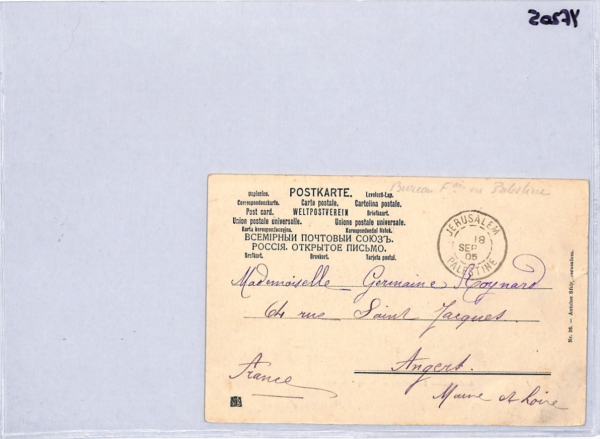 Za57Y
Bureau F en Palestine
POSTKARTE.
Levelező-Lap.
Correspondenzkarte. Carte postale. Cartolina postale.
Post card. WELTPOSTVEREIN Briefkaart.
Union postale universelle. Unione postale universale.
Karta korespondencyjna. Korespondenční lístek.
ВСЕМІРНЫЙ ПОЧТОВЫЙ СОЮЗЪ.
РОССІЯ. ОТКРЫТОЕ ПИСЬМО.
Brefkort. Brevkort. Tarjeta postal.
JERUSALEM
18
SEP
05
PALESTINE
Mademoiselle Germaine Roynard
64 rue Saint Jacques
Angers.
France
Maine et Loire